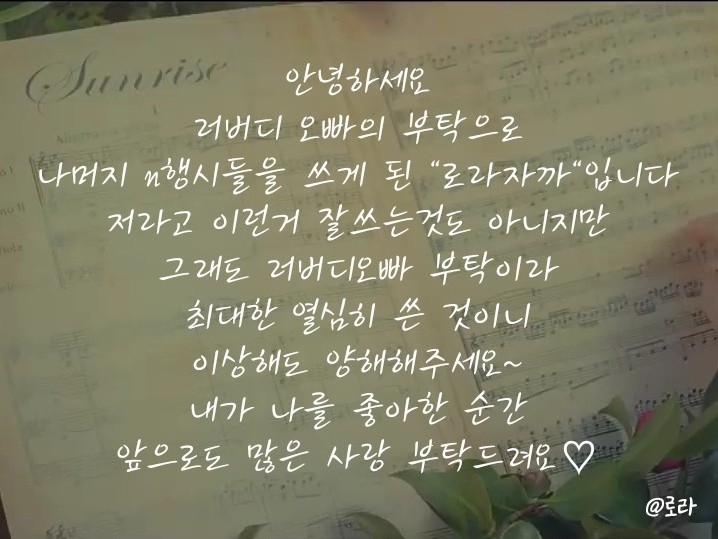 Sunrise
안녕하세요
러버디 오빠의 부탁으로
나머지 n행시들을 쓰게 된 "로라자까"입니다
저라고 이런거 잘쓰는것도 아니지만
그래도 러버디오빠 부탁이라
최대한 열심히 쓴 것이니
이상해도 양해해주세요~
내가 나를 좋아한 순간
앞으로도 많은 사랑 부탁드려요♡
@로라